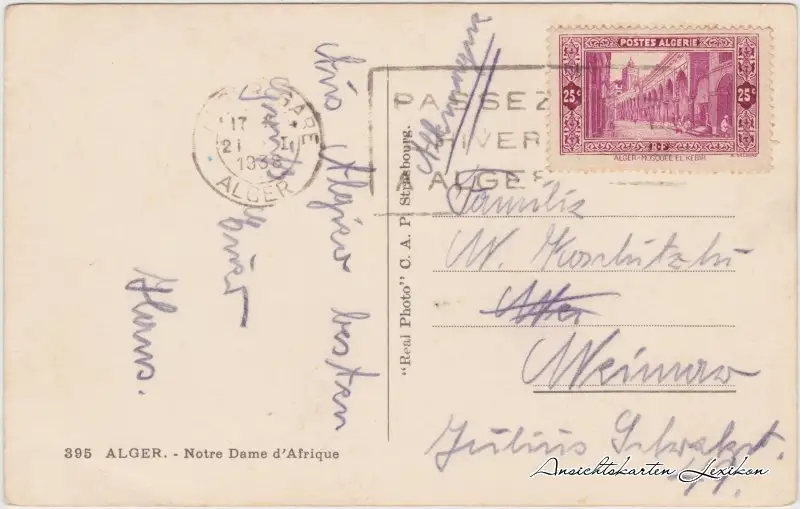 POSTES ALGERIE
25c
25c
1 CF
ALGER-MOSQUEE EL KEBIR
GARE
17
21 I
1938
ALGER
PASSEZ
HIVER
ALGER
Allemagne
Aus Algier besten
Gruß
Hans.
"Real Photo" C. A. P. Strasbourg.
Familie
W.
Weimar
Julius
395 ALGER. - Notre Dame d'Afrique
Ansichtskarten Lexikon